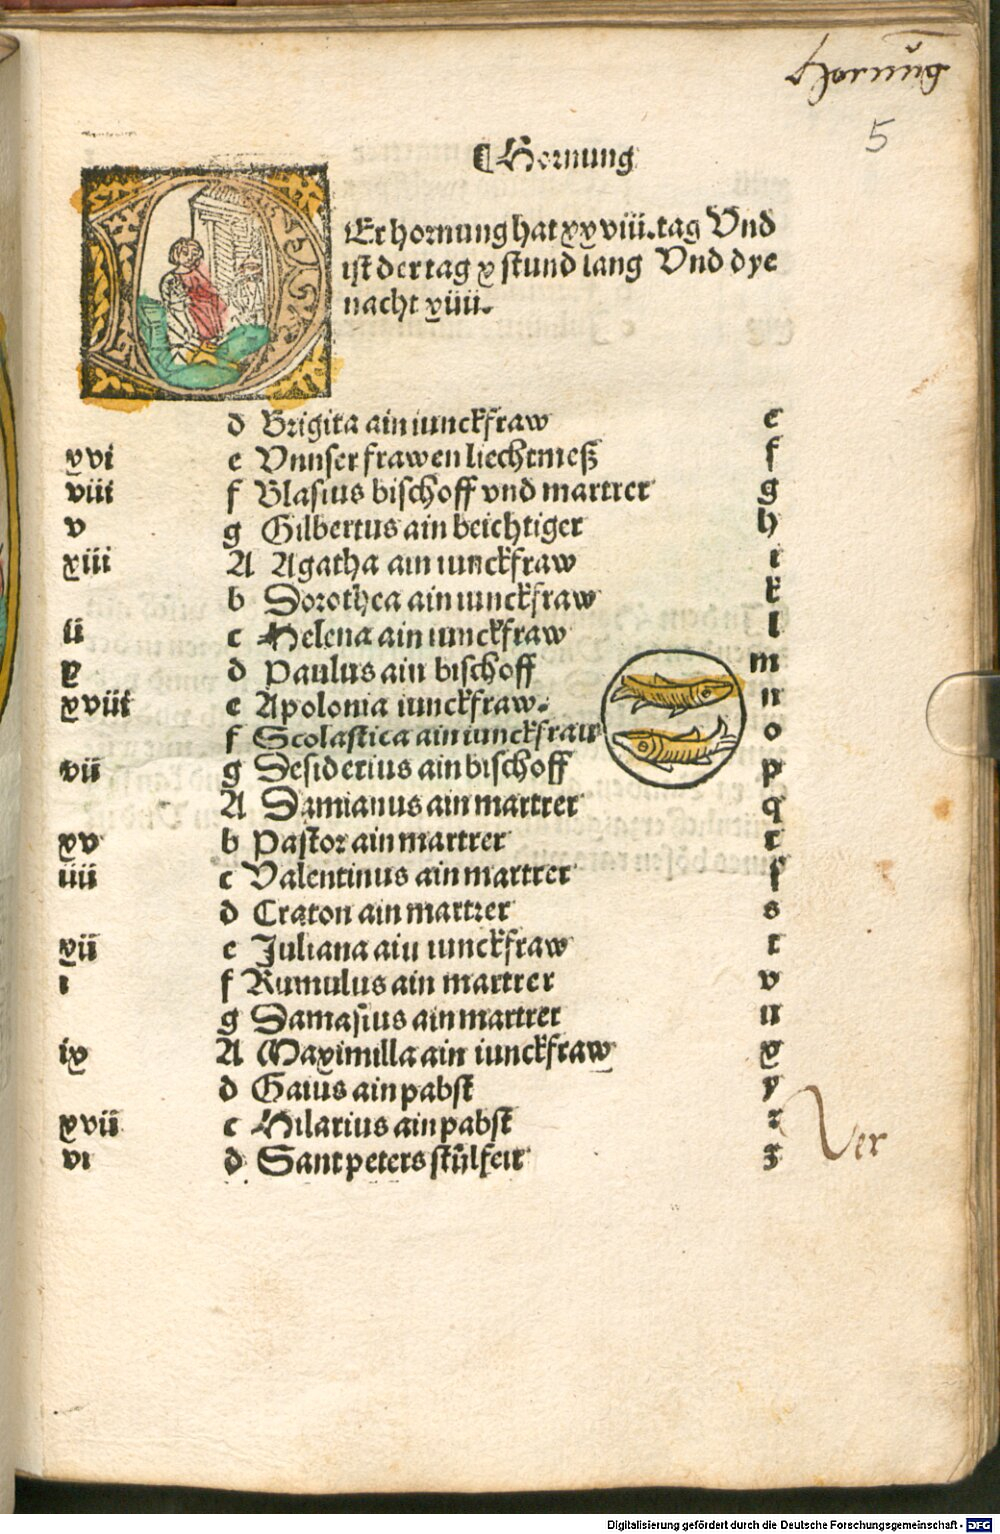 Hornũg
5
⸿ Hornung
DEr hornung hat xxviii. tag Vnd
ist der tag x stund lang Vnd dye
nacht xiiii.
d Brigita ain iunckfraw e
xvi e Vnnser frawen liechtmeß f
viii f Blasius bischoff vnd martrer g
v g Gilbertus ain beichtiger h
xiii A Agatha ain iunckfraw i
b Dorothea ain iunckfraw k
ii c Helena ain iunckfraw l
x d Paulus ain bischoff m
xviii e Apolonia iunckfraw. n
f Scolastica ain iunckfraw o
vii g Desiderius ain bischoff p
A Damianus ain martrer q
xv b Pastor ain martrer r
iiii c Valentinus ain martrer ſ
d Craton ain martrer s
xii e Juliana aiu iunckfraw t
i f Rumulus ain martrer v
g Damasius ain martrer u
ix A Maximilla ain iunckfraw x
d Gaius ain pabst y
xvii c Hilarius ain pabst z
vi d Sant peters stůlfeir ʒ
Ver
Digitalisierung gefördert durch die Deutsche Forschungsgemeinschaft - DFG